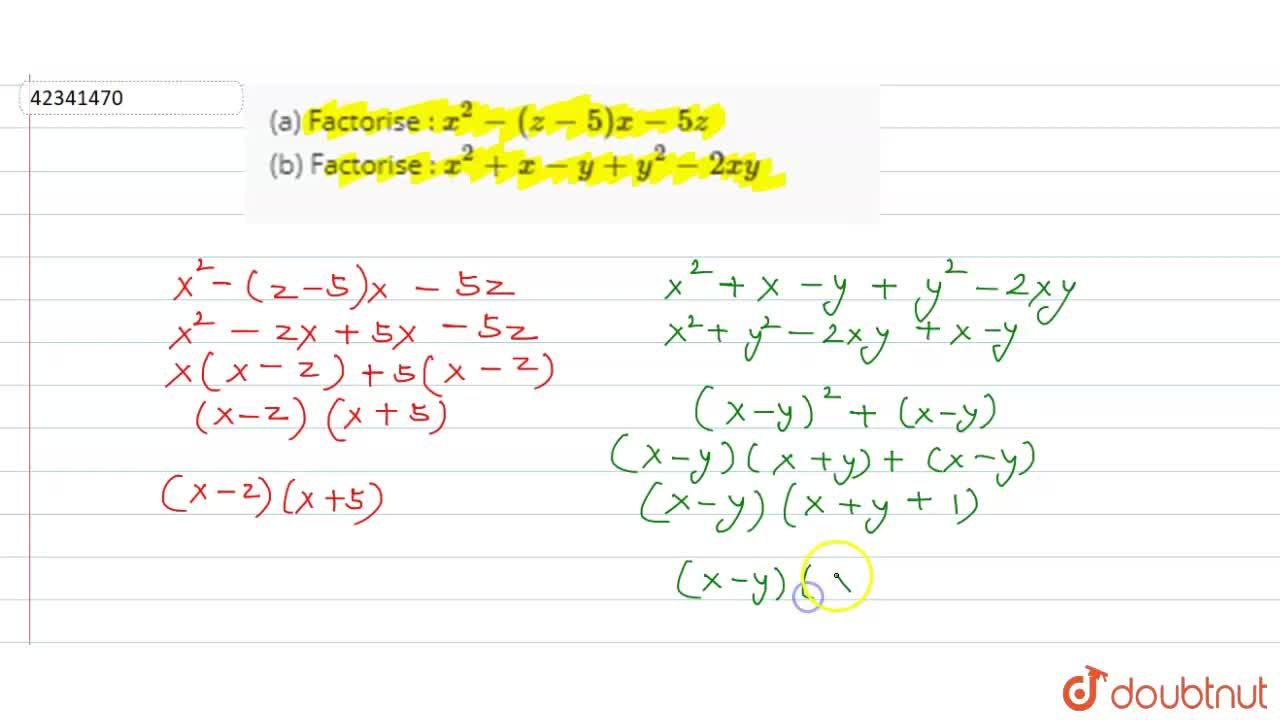 42341470
(a) Factorise : x² − (z − 5)x − 5z
(b) Factorise : x² + x − y + y² − 2xy
x² − (z − 5)x − 5z
x² − zx + 5x − 5z
x(x − z) + 5(x − z)
(x − z) (x + 5)
(x − z) (x + 5)
x² + x − y + y² − 2xy
x² + y² − 2xy + x − y
(x − y)² + (x − y)
(x − y) (x + y) + (x − y)
(x − y) (x + y + 1)
(x − y) (
doubtnut